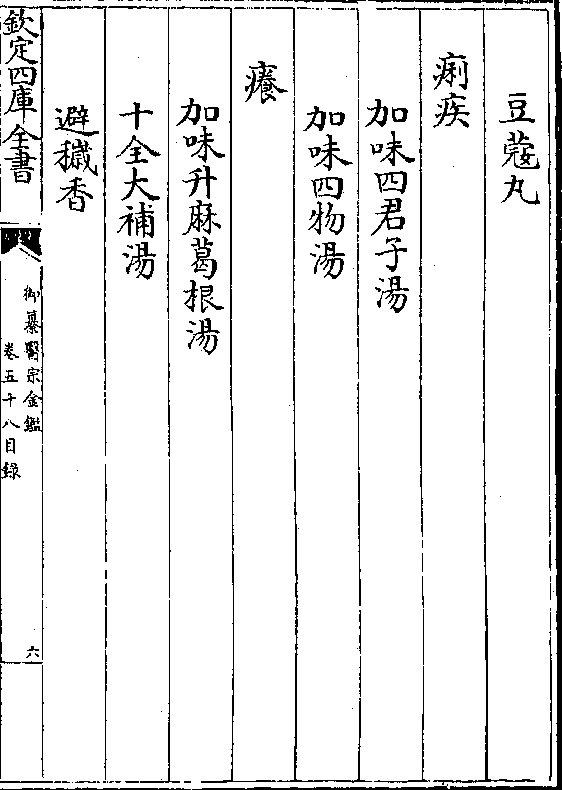 豆蔻丸
痢疾
加味四君子湯
加味四物湯
癢
加味升麻葛根湯
十全大補湯
避穢香
欽定四庫全書
御纂醫宗金鑑
卷五十八目錄
六